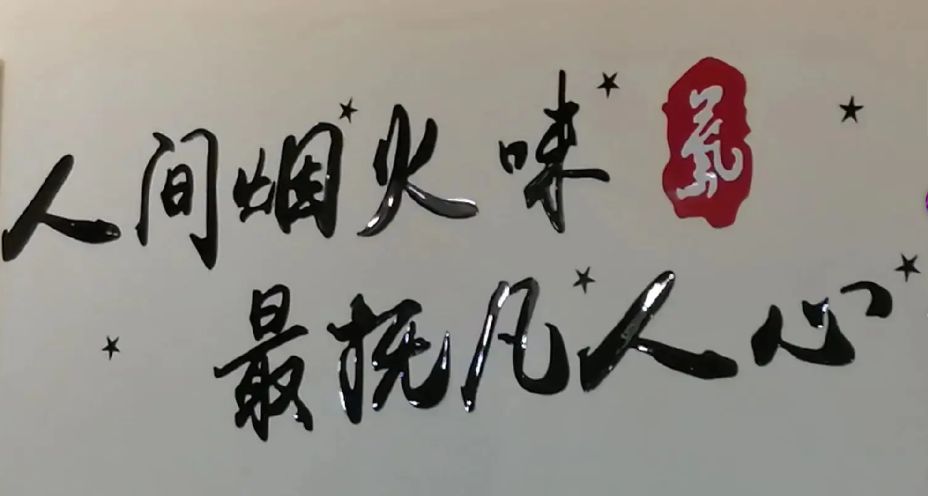 人间烟火味
最抚凡人心